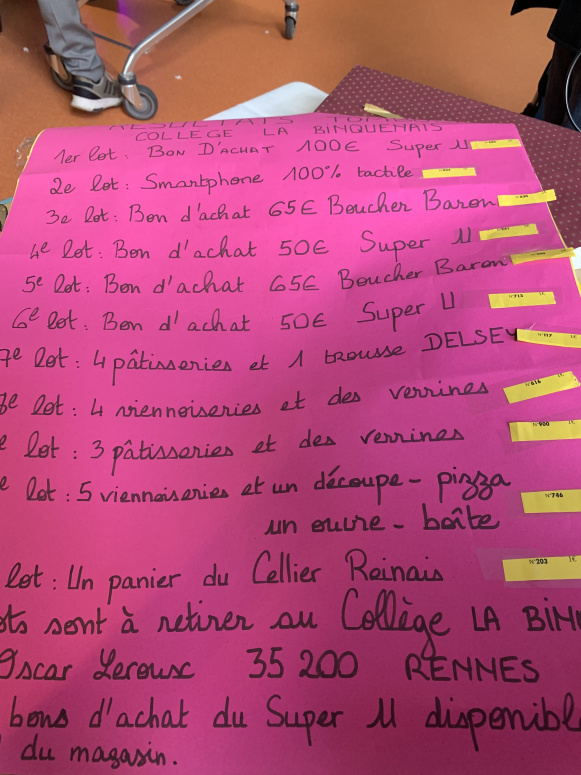 RESULTATS
COLLEGE LA BINQUENAIS
1er lot : BON D'ACHAT 100€ Super U
2e lot : Smartphone 100% tactile
3e lot : Bon d'achat 65€ Boucher Baron
4e lot : Bon d'achat 50€ Super U
5e lot : Bon d'achat 65€ Boucher Baron
6e lot : Bon d'achat 50€ Super U
N°713 1€
7e lot : 4 pâtisseries et 1 trousse DELSEY
N°117 1€
e lot : 4 viennoiseries et des verrines
N°616
e lot : 3 pâtisseries et des verrines
N°900 1€
e lot : 5 viennoiseries et un découpe - pizza
un ouvre - boîte
N°746
lot : Un panier du Cellier Reinais
N°203 1€
ots sont à retirer au Collège LA BIN
Oscar Leroux 35 200 RENNES
bons d'achat du Super U disponibl
du magasin.